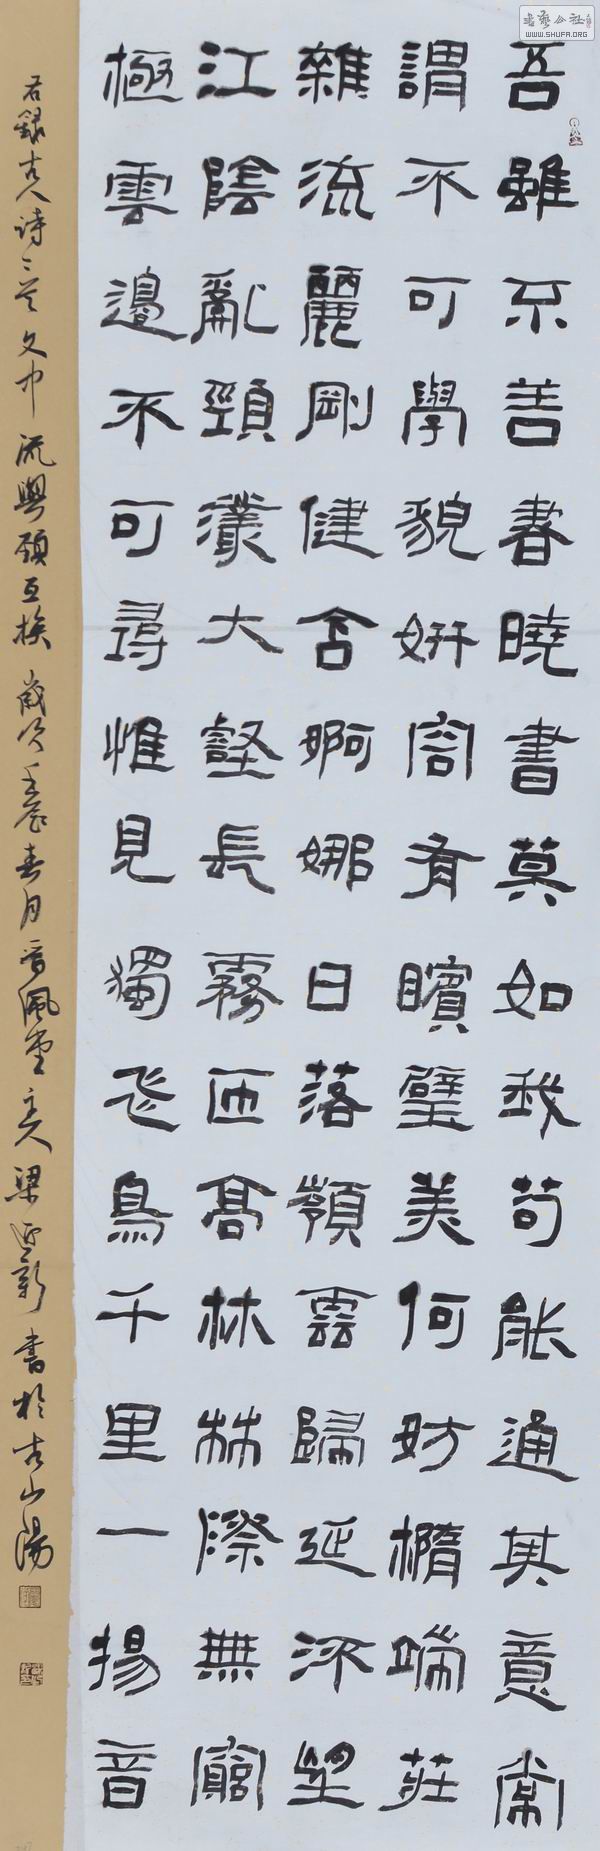 吾雖不善書曉書莫如我苟能通其意常
謂不可學貌妍容有矉璧美何妨橢端莊
雜流麗剛健含婀娜日落嶺雲歸延㳄望
江陰亂頸叢大壑長霧匝高林林際無窮
極雲邊不可尋惟見獨飛鳥千里一揚音
右錄古人诗二首文中流與頸互换歲次壬辰春月晋風堂主人梁迎新書於古山陽
書藝公社
WWW.SHUFA.ORG